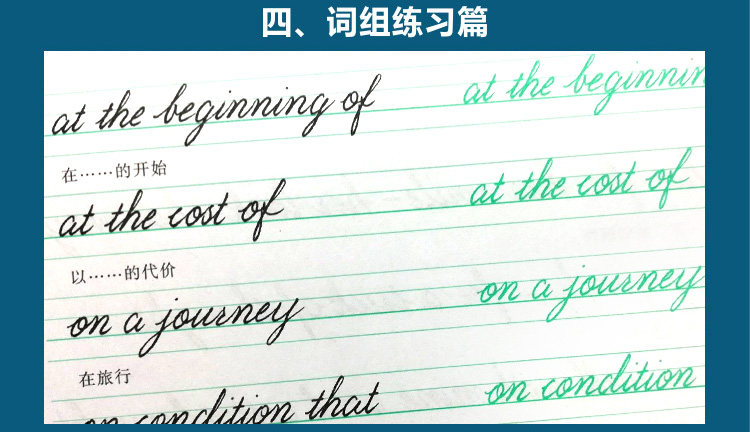 四、词组练习篇
at the beginning of at the beginnin
在……的开始
at the cost of at the cost of
以……的代价
on a journey on a journey
在旅行
on condition that on condition